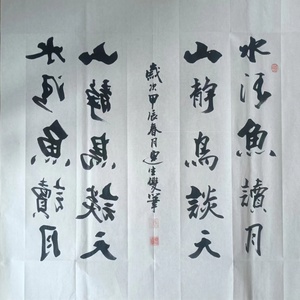 水清魚讀月
山靜鳥談天
歲次甲辰春月生雙筆
山靜鳥談天
水清魚讀月